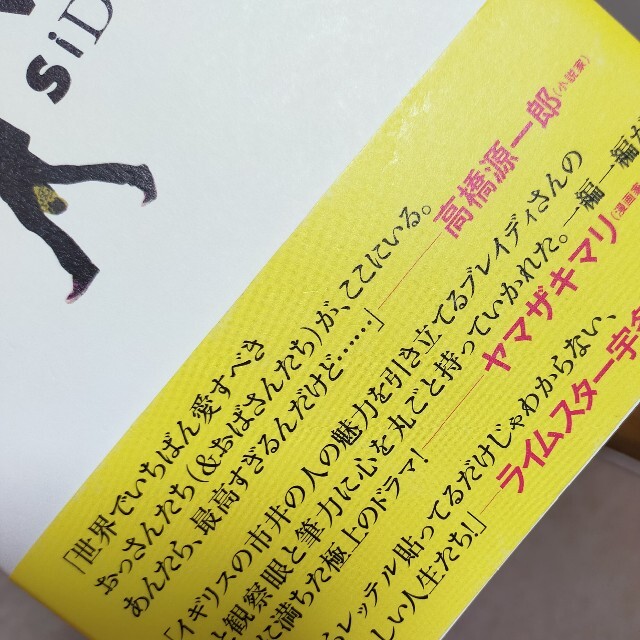 SiD
「世界でいちばん愛すべき
おっさんたち(&おばさんたち)が、ここにいる。
あんたら、最高すぎるんだけど……」
高橋源一郎(小説家)
「イギリスの市井の人の魅力を引き立てるブレイディさんの
と観察眼と筆力に心を丸ごと持っていかれた。一編一編が
に満ちた極上のドラマ!
ヤマザキマリ(漫画家
レッテル貼ってるだけじゃわからない、
しい人生たち!」
ライムスター宇